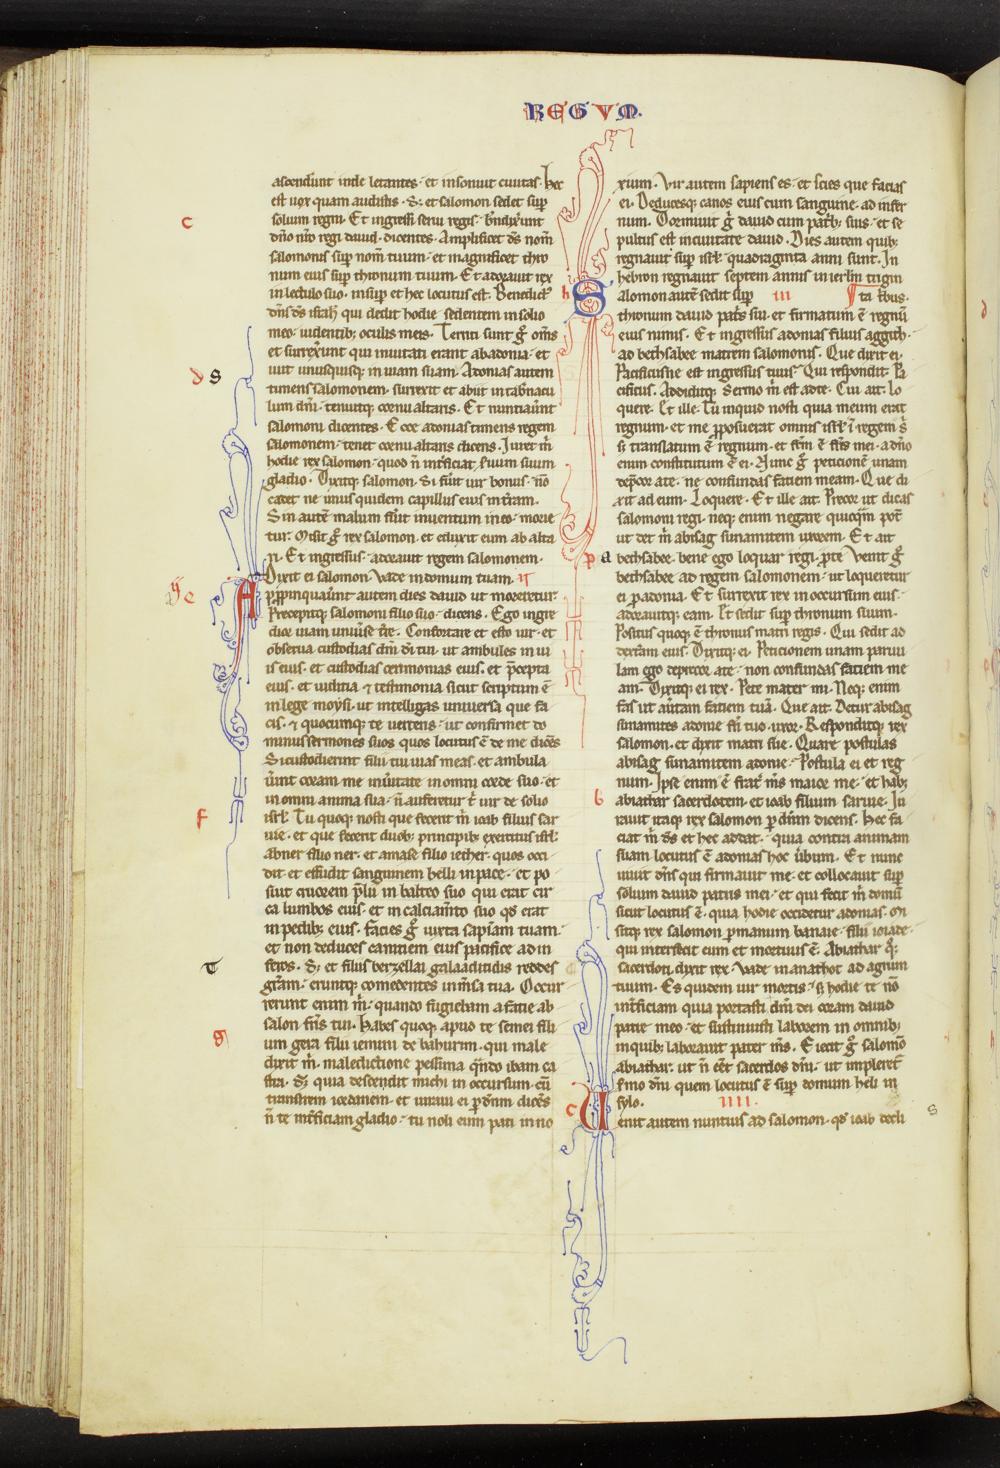 REGVM.
ascendunt inde letantes· et insonuit ciuitas· hec
est uox quam audistis· S; et salomon sedet sup
solium regni· Et ingressi serui regis· bndixerunt
dño nro regi dauid· dicentes· Amplificet ds nom
salomonis sup nom tuum· et magnificet thro
num eius sup thronum tuum· Et adorauit rex
in lectulo suo· insup et hec locutus est· Benedict
dns ds isrl qui dedit hodie sedentem in solio
meo· uidentib; oculis meis· Territi sunt g oms
et surrexerunt qui inuitati erant ab adonia· et
iuit unusquisq; in uiam suam· Adonias autem
timens salomonem· surrexit et abiit in tabnacu
lum dni· tenuitq; cornu altaris· Et nuntiauert
salomoni dicentes· Ecce adonias timens regem
salomonem· tenet cornu altaris dicens· Iuret m
hodie rex salomon· quod n intficiat seruum suum
gladio· Dixitq; salomon· Si fuit uir bonus· no
cadet ne unus quidem capillus eius in tram·
Sin aute malum fuit inuentum in eo· morie
tur· Misit g rex salomon· et eduxit eum ab alta
ri· Et ingressus· adorauit regem salomonem·
Dixit ei salomon· Vade in domum tuam· II
Appropinquauert autem dies dauid ut moreretur·
Precepitq; salomoni filio suo· dicens· Ego ingre
dior uiam uniuse tre· Confortare et esto uir· et
obserua custodias dni di tui· ut ambules in ui
is eius· et custodias cerimonias eius· et pcepta
eius· et iudicia· et testimonia sicut scriptum e
in lege moysi· ut intelligas uniuersa que fa
cis· et quocumq; te uertens· ut confirmet do
minus sermones suos quos locutus e de me dices
Si custodierint filii tui uias meas· et ambula
uint coram me in uitate in omni corde suo· et
in omni anima sua· n auferetur t uir de solio
isrl· Tu quoq; nosti que fecerit m ioab filius sar
uie· et que fecerit duob; principib; exercitus isrl·
Abner filio ner· et amase filio iether· quos occi
dit et effudit sanguinem belli in pace· et po
suit cruorem plii in balteo suo qui erat cir
ca lumbos eius· et in calciamto suo qd erat
in pedib; eius· Facies g iuxta sapiam tuam·
et non deduces canitiem eius pacifice ad in
feros· S; et filiis berzellai galaaditidis reddes
gram· eruntq; comedentes in msa tua· Occur
rerunt enim m· quando fugiebam a facie ab
salon fris tui· Habes quoq; apud te semei fili
um gera filii iemini de bahurim· qui male
dixit m· maledictione pessima qndo ibam ca
stra· S; quia descendit michi in occursum· cu
transirem iordanem· et iuraui ei p dnm dices
n te intficiam gladio· tu noli eum pati inno
xium· Vir autem sapiens es· et scies que facias
ei· Deducesq; canos eius cum sanguine· ad infer
num· Dormiuit g dauid cum patb; suis· et se
pultus est in ciuitate dauid· Dies autem quib;
regnauit sup isrl· quadraginta anni sunt· In
hebron regnauit septem annis in ierlm trigin
Salomon aute sedit sup III ta tbus·
thronum dauid patris sui· et firmatum e regnu
eius nimis· Et ingressus adonias filius aggith·
ad bethsabee matrem salomonis· Que dixit ei·
Pacificusne est ingressus tuus· Qui respondit· Pa
cificus· Addiditq; Sermo m est ad te· Cui ait· Lo
quere· Et ille· Tu inquid nosti quia meum erat
regnum· et me pposuerat omnis isrl i regem s
s; translatum e regnum· et ftm e fris mei· a dno
enim constitutum e ei· Nunc g peticione unam
depcor a te· ne confundas faciem meam· Que di
xit ad eum· Loquere· Et ille ait· Precor ut dicas
salomoni regi· neq; enim negare quicqm pot
ut det m abisag sunamitem uxorem· Et ait
bethsabee· bene ego loquar regi p te· Venit g
bethsabee ad regem salomonem· ut loqueretur
ei p adonia· Et surrexit rex in occursum eius·
adorauitq; eam· Et sedit sup thronum suum·
Positus quoq; e thronus matri regis· Qui sedit ad
dextram eius· Dixitq; ei· Peticionem unam paruu
lam ego deprecor a te· non confundas faciem me
am· Dixitq; ei rex· Pete mater mi· Neq; enim
fas ut auertam faciem tua· Que ait· Detur abisag
sunamites adonie fri tuo uxor· Responditq; rex
salomon· et dixit matri sue· Quare postulas
abisag sunamitem adonie· Postula ei et reg
num· Ipse enim e frat ms maior me· et hab;
abiathar sacerdotem· et ioab filium saruie· Iu
rauit itaq; rex salomon p dnm dicens· Hec fa
ciat m ds et hec addat· quia contra animam
suam locutus e adonias hoc ubum· Et nunc
uiuit dns qui firmauit me· et collocauit sup
solium dauid patris mei· et qui fecit m domu
sicut locutus e· quia hodie occidetur adonias· Mi
sitq; rex salomon p manum banaie· filii ioiade·
qui interfecit eum et mortuus e· Abiathar q;
sacerdoti dixit rex· Vade in anathot ad agrum
tuum· Es quidem uir mortis· s; hodie te no
intficiam quia portasti dni dei coram dauid
patre meo· et sustinuisti laborem in omnib;
in quib; laborauit pater ms· Eiecit g salomo
abiathar· ut n eet sacerdos dni· ut impleret
smo dni quem locutus e sup domum heli in
sylo· IIII·
Venit autem nuntius ad salomon· qd ioab decli